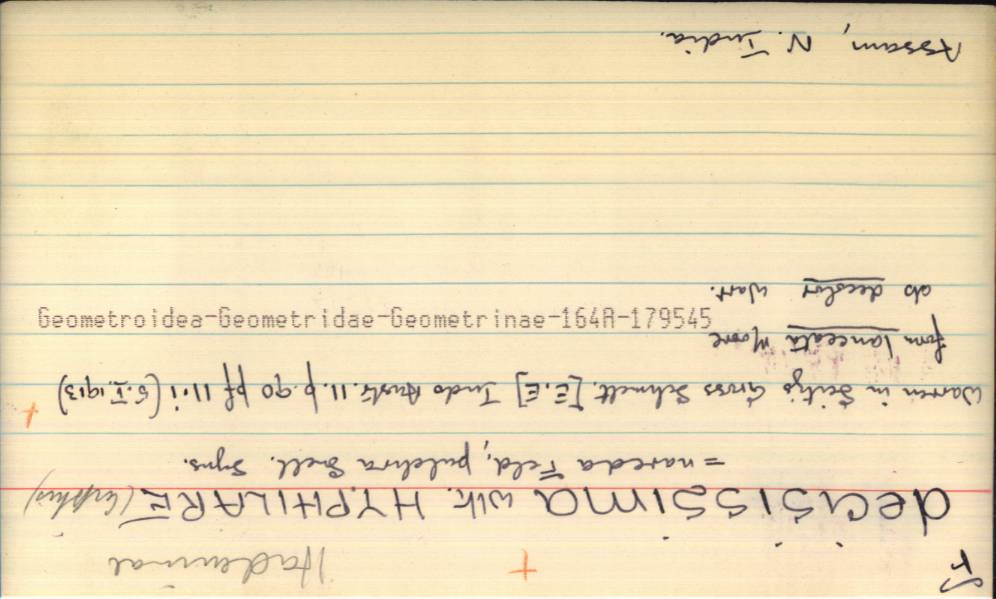 F
Hadeninae
decisissima wlk. HYPHILARE (Euplexia)
= nareda Feld, pulchra Snell. Syns.
Warren in Seitzs Gross Schmett. [E.E] Indo Austr. 11. p. 90 pf 11. i (5. I. 1913)
form lanceata Moore
Geometroidea-Geometridae-Geometrinae-164A-179545
ab decolor Warr.
Assam, N. India.